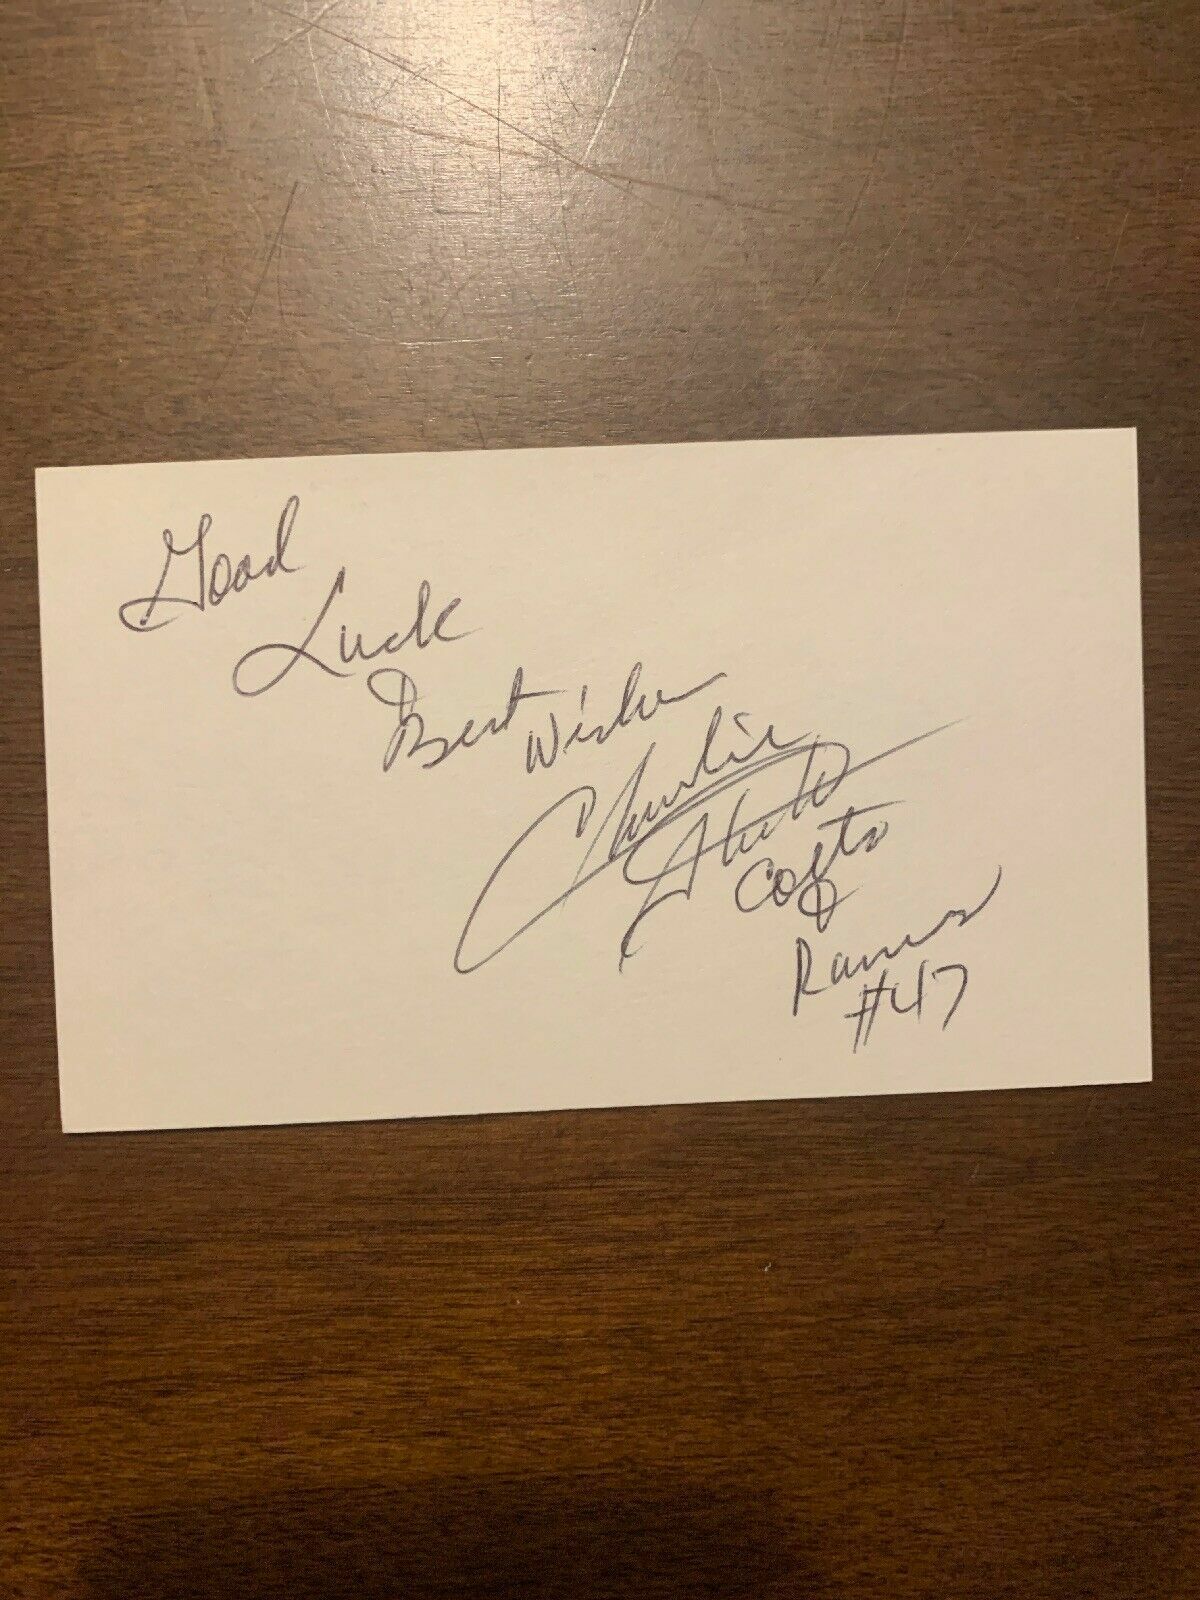 Good
Luck
Best Wishes
Charlie
Colts
Rams
#47